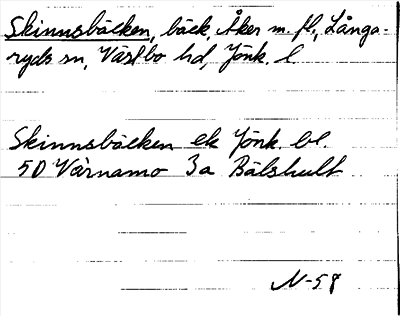 Skinnsbäcken, bäck, Åker m. fl., Långa-
ryds sn, Västbo hd, Jönk. l.
Skinnsbäcken ek Jönk. bl.
5D Värnamo 3a Bälshult
N-58